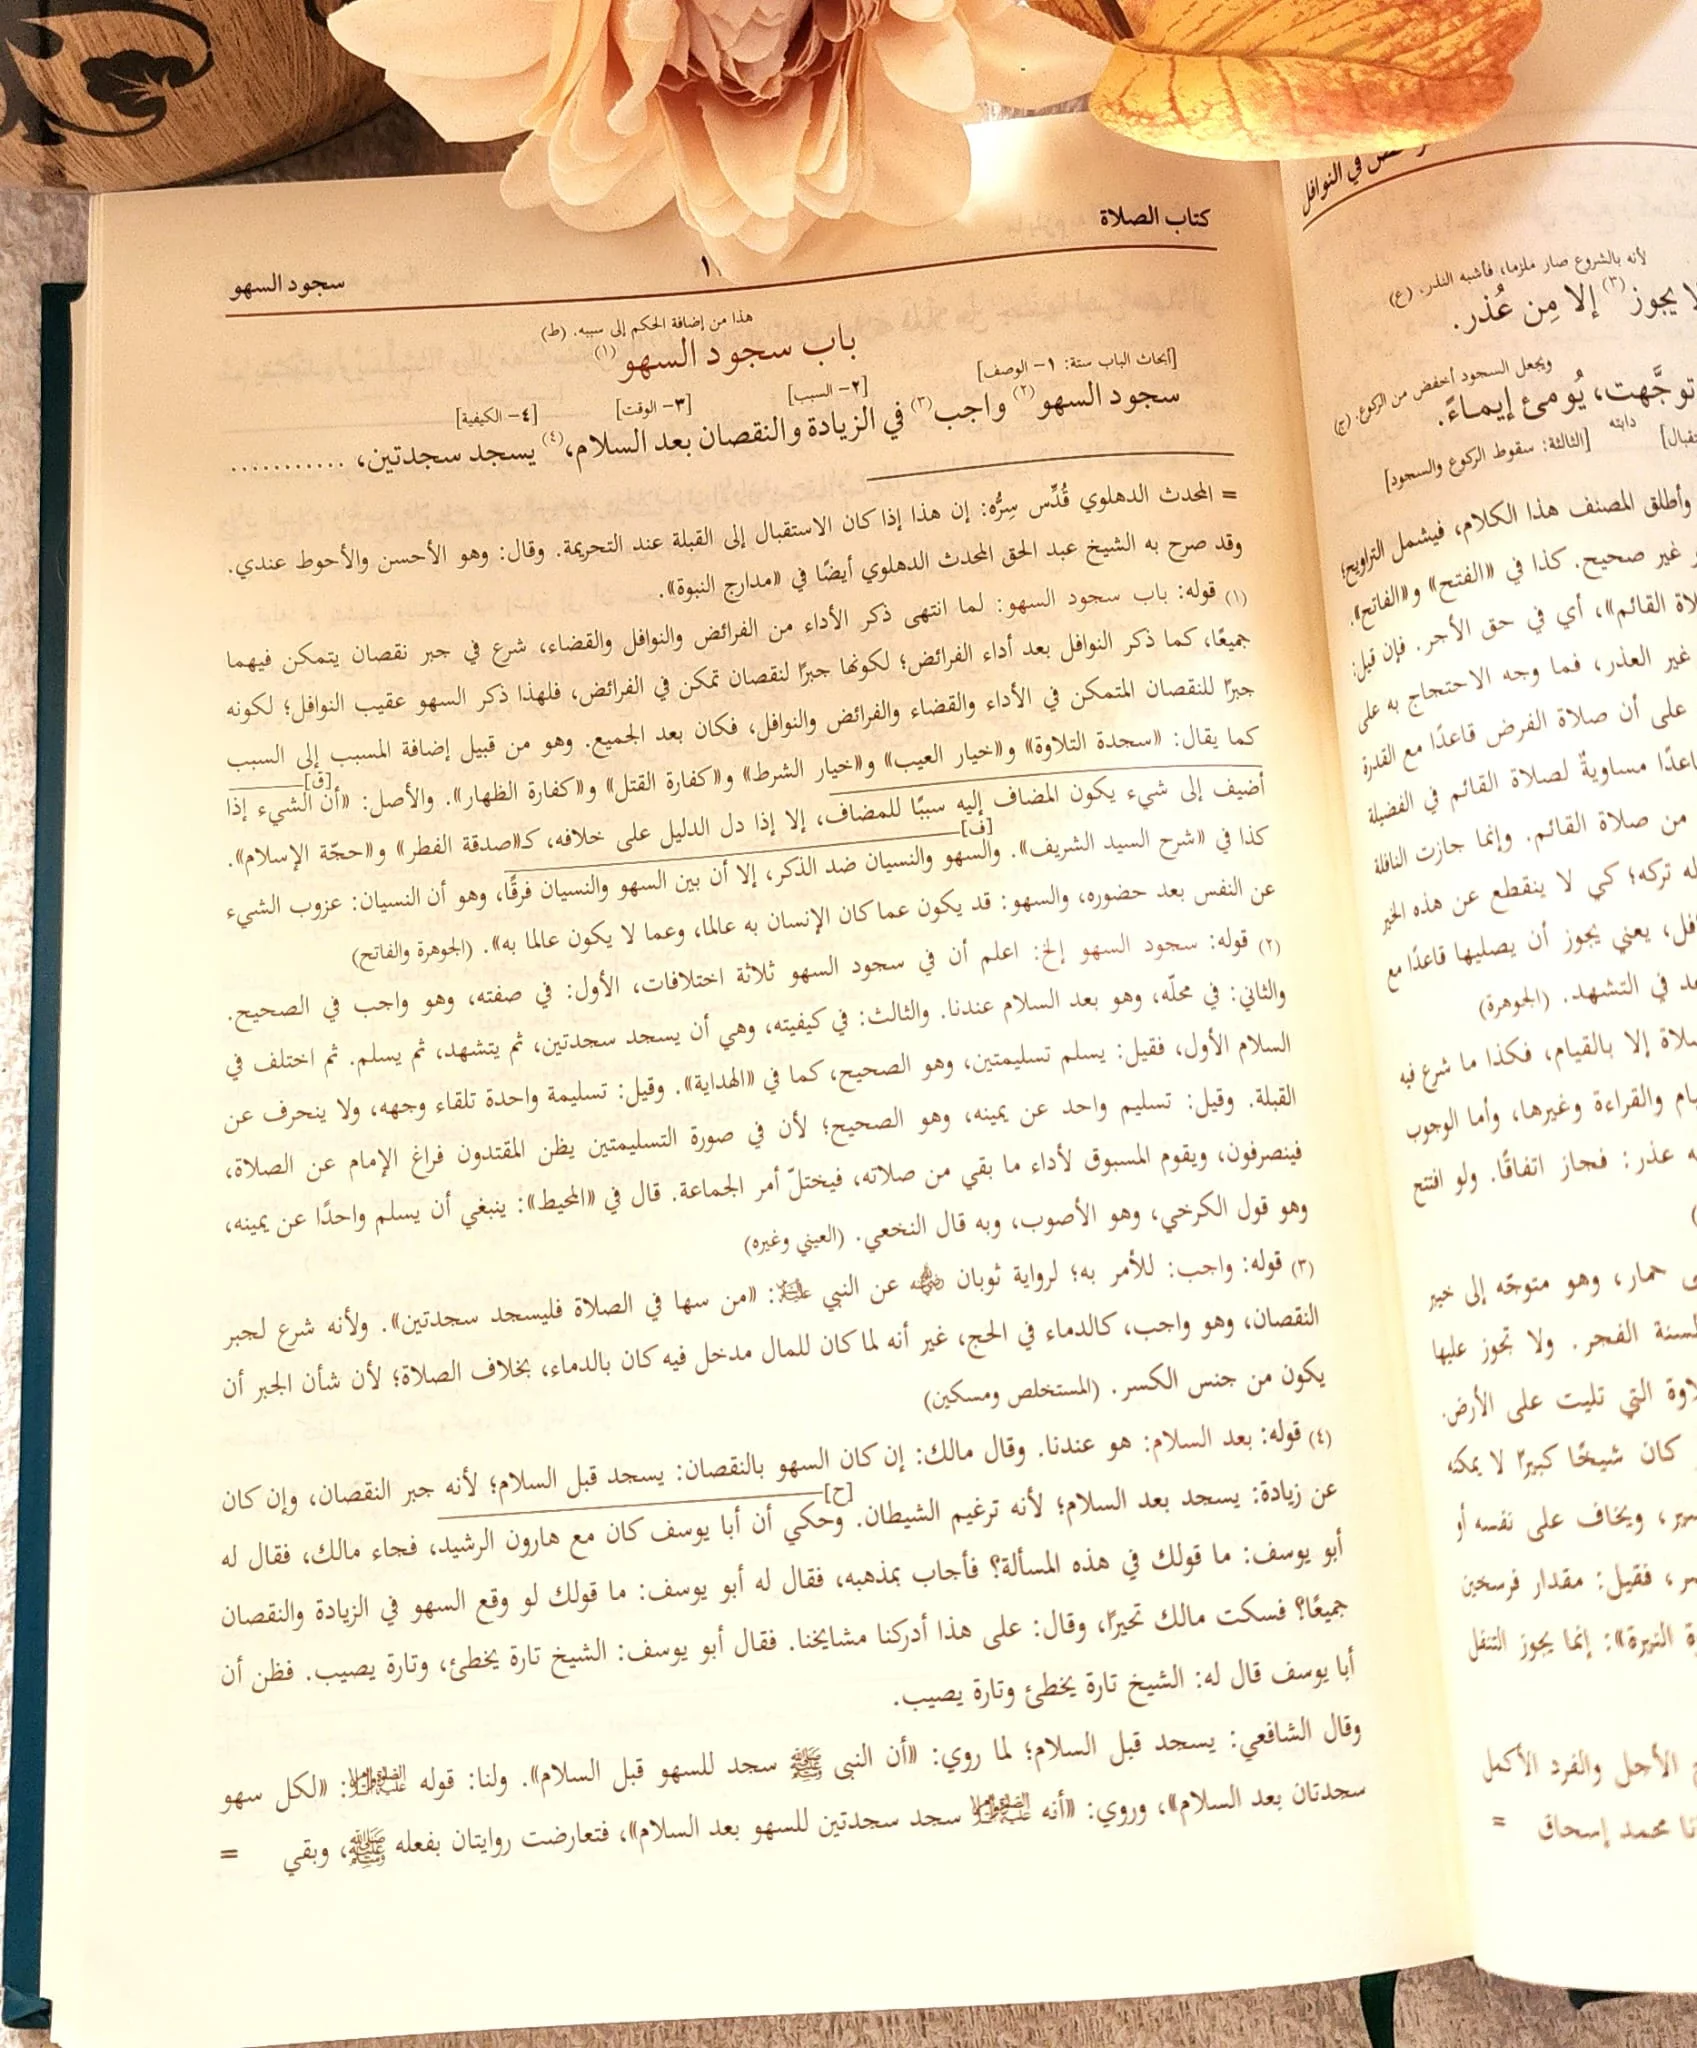 كتاب الصلاة
١
سجود السهو
هذا من إضافة الحكم إلى سببه. (ط)
باب سجود السهو (١)
[أبحاث الباب ستة: ١- الوصف]
[٢- السبب]
[٣- الوقت]
[٤- الكيفية]
سجود السهو (٢) واجب (٣) في الزيادة والنقصان بعد السلام، (٤) يسجد سجدتين، ...........
= المحدث الدهلوي قُدِّس سِرُّه: إن هذا إذا كان الاستقبال إلى القبلة عند التحريمة. وقال: وهو الأحسن والأحوط عندي.
وقد صرح به الشيخ عبد الحق المحدث الدهلوي أيضًا في «مدارج النبوة».
(١) قوله: باب سجود السهو: لما انتهى ذكر الأداء من الفرائض والنوافل والقضاء، شرع في جبر نقصان يتمكن فيهما
جميعًا، كما ذكر النوافل بعد أداء الفرائض؛ لكونها جبرًا لنقصان تمكن في الفرائض، فلهذا ذكر السهو عقيب النوافل؛ لكونه
جبرًا للنقصان المتمكن في الأداء والقضاء والفرائض والنوافل، فكان بعد الجميع. وهو من قبيل إضافة المسبب إلى السبب
كما يقال: «سجدة التلاوة» و«خيار العيب» و«خيار الشرط» و«كفارة القتل» و«كفارة الظهار». والأصل: «أن الشيء إذا
[ق]
أضيف إلى شيء يكون المضاف إليه سببًا للمضاف، إلا إذا دل الدليل على خلافه، كـ«صدقة الفطر» و«حجّة الإسلام».
[ف]
كذا في «شرح السيد الشريف». والسهو والنسيان ضد الذكر، إلا أن بين السهو والنسيان فرقًا، وهو أن النسيان: عزوب الشيء
عن النفس بعد حضوره، والسهو: قد يكون عما كان الإنسان به عالما، وعما لا يكون عالما به». (الجوهرة والفاتح)
(٢) قوله: سجود السهو إلخ: اعلم أن في سجود السهو ثلاثة اختلافات، الأول: في صفته، وهو واجب في الصحيح.
والثاني: في محلّه، وهو بعد السلام عندنا. والثالث: في كيفيته، وهي أن يسجد سجدتين، ثم يتشهد، ثم يسلم. ثم اختلف في
السلام الأول، فقيل: يسلم تسليمتين، وهو الصحيح، كما في «الهداية». وقيل: تسليمة واحدة تلقاء وجهه، ولا ينحرف عن
القبلة. وقيل: تسليم واحد عن يمينه، وهو الصحيح؛ لأن في صورة التسليمتين يظن المقتدون فراغ الإمام عن الصلاة،
فينصرفون، ويقوم المسبوق لأداء ما بقي من صلاته، فيختلّ أمر الجماعة. قال في «المحيط»: ينبغي أن يسلم واحدًا عن يمينه،
وهو قول الكرخي، وهو الأصوب، وبه قال النخعي. (العيني وغيره)
(٣) قوله: واجب: للأمر به؛ لرواية ثوبان رضي الله عنه عن النبي عليه السلام: «من سها في الصلاة فليسجد سجدتين». ولأنه شرع لجبر
النقصان، وهو واجب، كالدماء في الحج، غير أنه لما كان للمال مدخل فيه كان بالدماء، بخلاف الصلاة؛ لأن شأن الجبر أن
يكون من جنس الكسر. (المستخلص ومسكين)
(٤) قوله: بعد السلام: هو عندنا. وقال مالك: إن كان السهو بالنقصان: يسجد قبل السلام؛ لأنه جبر النقصان، وإن كان
[ح]
عن زيادة: يسجد بعد السلام؛ لأنه ترغيم الشيطان. وحكي أن أبا يوسف كان مع هارون الرشيد، فجاء مالك، فقال له
أبو يوسف: ما قولك في هذه المسألة؟ فأجاب بمذهبه، فقال له أبو يوسف: ما قولك لو وقع السهو في الزيادة والنقصان
جميعًا؟ فسكت مالك تحيرًا، وقال: على هذا أدركنا مشايخنا. فقال أبو يوسف: الشيخ تارة يخطئ، وتارة يصيب. فظن أن
أبا يوسف قال له: الشيخ تارة يخطئ وتارة يصيب.
وقال الشافعي: يسجد قبل السلام؛ لما روي: «أن النبي ﷺ سجد للسهو قبل السلام». ولنا: قوله عليه الصلاة والسلام: «لكل سهو
سجدتان بعد السلام»، وروي: «أنه عليه الصلاة والسلام سجد سجدتين للسهو بعد السلام»، فتعارضت روايتان بفعله ﷺ، وبقي =
في النوافل
لأنه بالشروع صار ملزما، فأشبه النذر. (ع)
لا يجوز (٣) إلا مِن عُذر.
ويجعل السجود أخفض من الركوع. (ج)
توجَّهت، يُومئ إيماءً.
دابته
[الثالثة: سقوط الركوع والسجود]
وأطلق المصنف هذا الكلام، فيشمل التراويح؛
غير صحيح. كذا في «الفتح» و«الفاتح».
القائم»، أي في حق الأجر. فإن قيل:
غير العذر، فما وجه الاحتجاج به على
على أن صلاة الفرض قاعدًا مع القدرة
مساويةً لصلاة القائم في الفضيلة
من صلاة القائم. وإنما جازت النافلة
له تركه؛ كي لا ينقطع عن هذه الخير
يعني يجوز أن يصليها قاعدًا مع
في التشهد. (الجوهرة)
إلا بالقيام، فكذا ما شرع فيه
والقراءة وغيرها، وأما الوجوب
عذر: فجاز اتفاقًا. ولو افتتح
حمار، وهو متوجّه إلى خيبر
لسنة الفجر. ولا تجوز عليها
التي تليت على الأرض.
كان شيخًا كبيرًا لا يمكنه
ويخاف على نفسه أو
فقيل: مقدار فرسخين
النيرة»: إنما يجوز التنفل
الأجل والفرد الأكمل
محمد إسحاق =